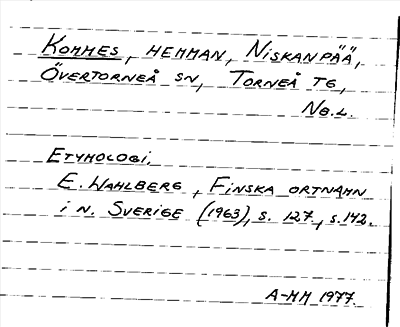 KOMMES, HEMMAN, NISKANPÄÄ,
ÖVERTORNEÅ SN, TORNEÅ TG,
NB.L.
ETYMOLOGI,
E. WAHLBERG, FINSKA ORTNAMN
I N. SVERIGE (1963), S. 127, S.142.
A-MH 1977.